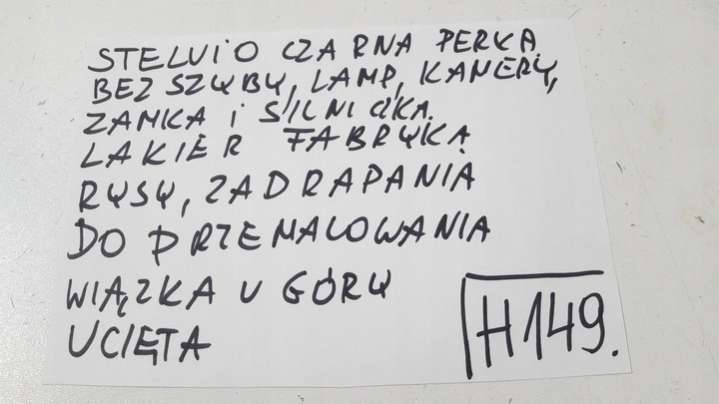 STELVIO CZARNA PERŁA
BEZ SZYBY, LAMP, KAMERY,
ZAMKA i SILNICZKA.
LAKIER FABRYKA
RYSY, ZADRAPANIA
DO PRZEMALOWANIA
WIĄZKA U GÓRY
UCIĘTA
H149.